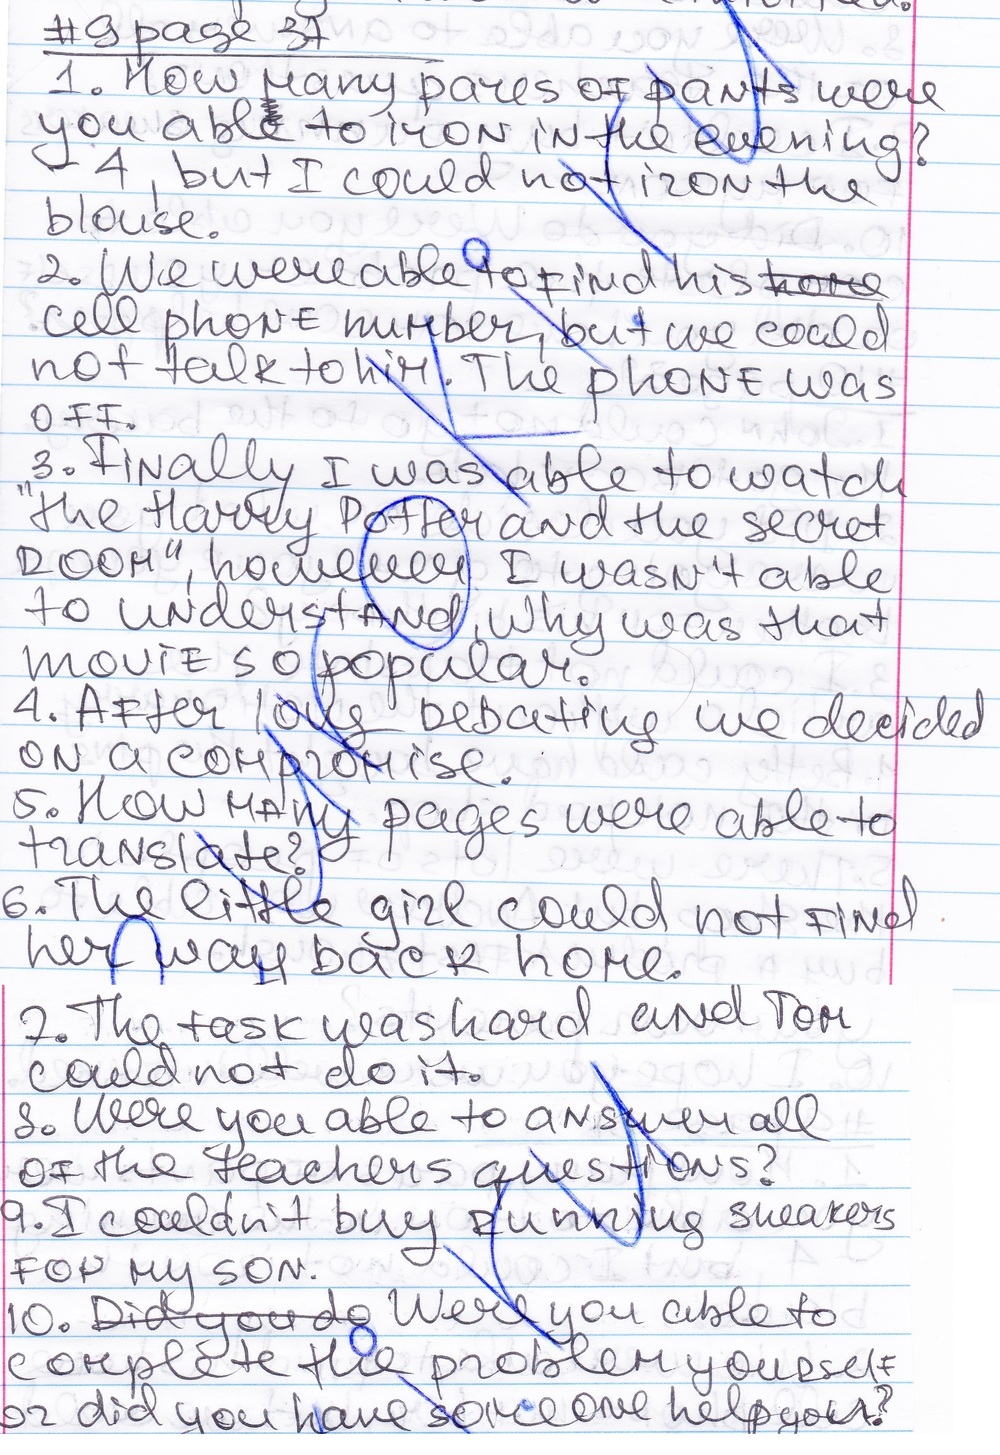 #9 page 37
1. How many pares of pants were
you able to iron in the evening?
- 4, but I could not iron the
blouse.
2. We were able to find his home
cell phone number, but we could
not talk to him. The phone was
off.
3. Finally I was able to watch
"the Harry Potter and the secret
room", however I wasn't able
to understand, why was that
movie so popular.
4. After long debating we decided
on a compromise.
5. How many pages were able to
translate?
6. The little girl could not find
her way back home.
7. The task was hard and Tom
could not do it.
8. Were you able to answer all
of the teachers questions?
9. I couldn't buy running sneakers
for my son.
10. Did you do Were you able to
complete the problem yourself
or did you have someone help you?